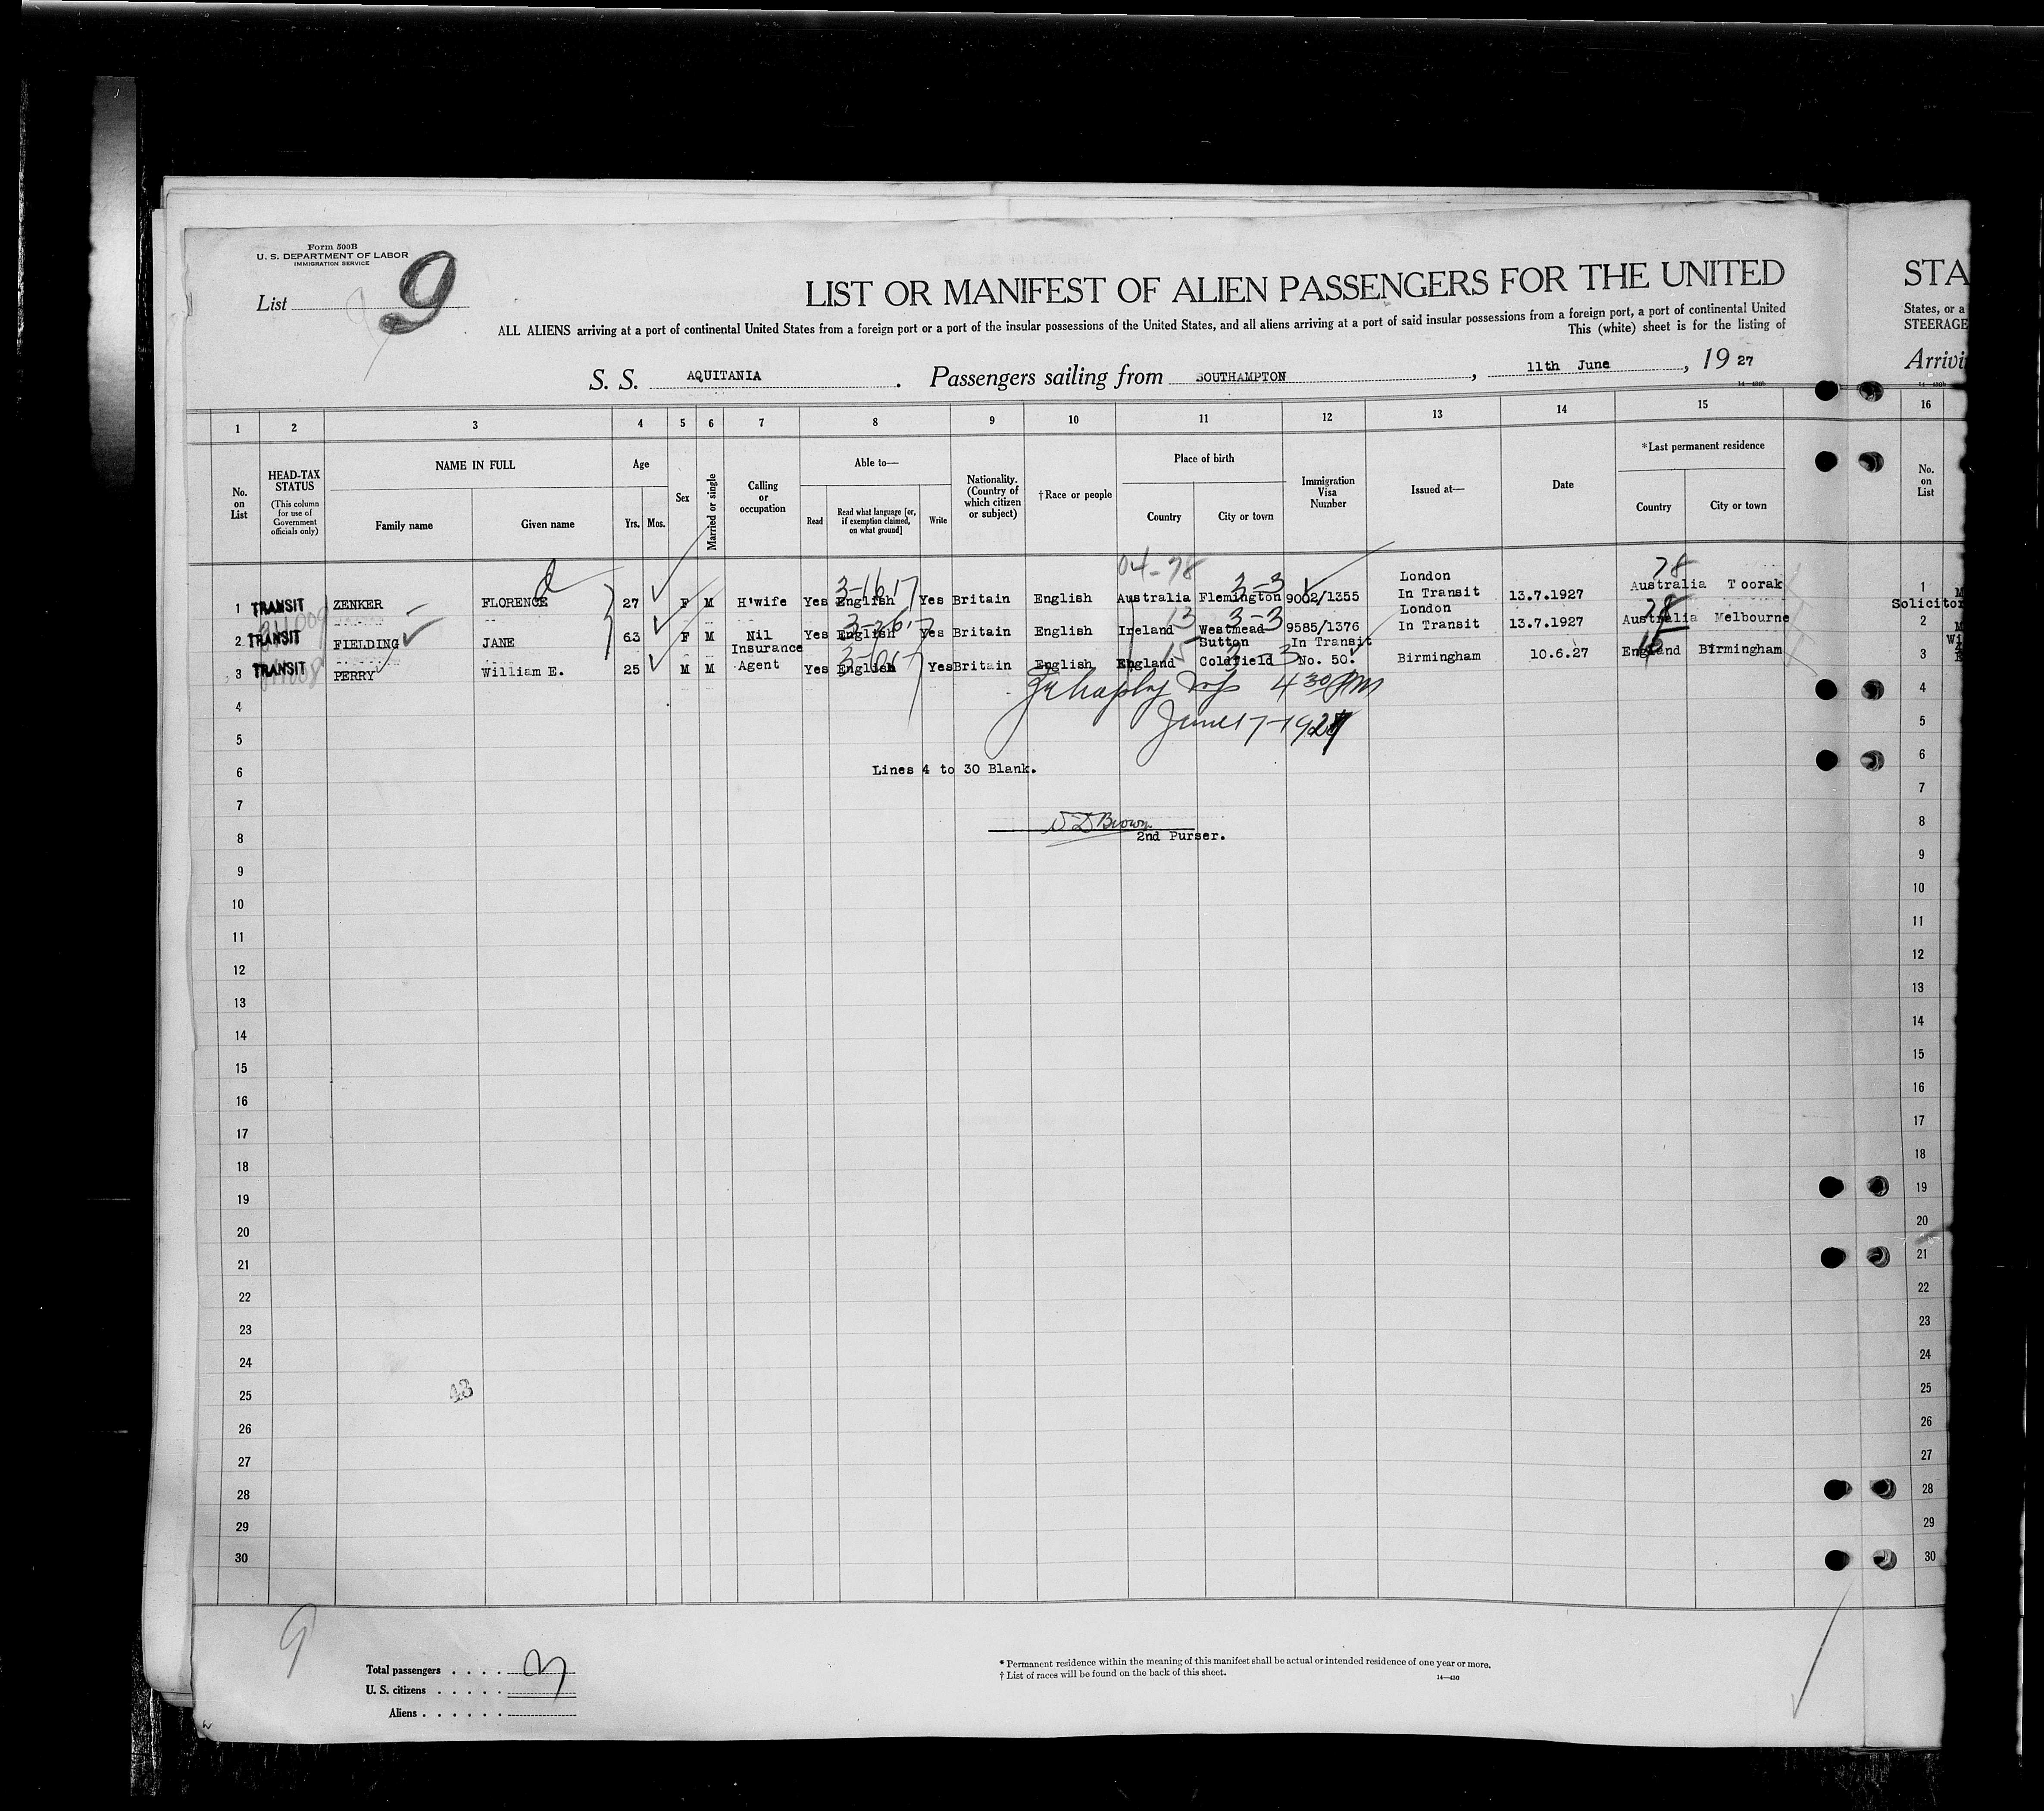 Form 500B
U. S. DEPARTMENT OF LABOR
IMMIGRATION SERVICE
List 9
LIST OR MANIFEST OF ALIEN PASSENGERS FOR THE UNITED
ALL ALIENS arriving at a port of continental United States from a foreign port or a port of the insular possessions of the United States, and all aliens arriving at a port of said insular possessions from a foreign port, a port of continental United
This (white) sheet is for the listing of
S. S. AQUITANIA. Passengers sailing from SOUTHAMPTON, 11th June, 19 27
STA
States, or a
STEERAGE
Arrivi
1 2 3 4 5 6 7 8 9 10 11 12 13 14 15 16
No. on List
HEAD-TAX STATUS
(This column for use of Government officials only)
NAME IN FULL
Family name Given name
Age
Yrs. Mos.
Sex
Married or single
Calling or occupation
Able to—
Read Read what language [or, if exemption claimed, on what ground] Write
Nationality. (Country of which citizen or subject)
†Race or people
Place of birth
Country City or town
Immigration Visa Number
Issued at—
Date
*Last permanent residence
Country City or town
No. on List
04-78 78
1 TRANSIT ZENKER FLORENCE 27 F M H'wife Yes English Yes Britain English Australia Flemington 9002/1355 London In Transit 13.7.1927 Australia Toorak 1
Solicitor
2 TRANSIT FIELDING JANE 63 F M Nil Yes English Yes Britain English Ireland Westmead 9585/1376 London In Transit 13.7.1927 Australia Melbourne 2
3 TRANSIT PERRY William E. 25 M M Insurance Agent Yes English Yes Britain English England Sutton Coldfield In Transit No. 50. Birmingham 10.6.27 England Birmingham 3
4 4 30 PM 4
June 17-1927
5 5
6 Lines 4 to 30 Blank. 6
7 7
8 Brown 8
2nd Purser.
9 9
10 10
11 11
12 12
13 13
14 14
15 15
16 16
17 17
18 18
19 19
20 20
21 21
22 22
23 23
24 24
25 43 25
26 26
27 27
28 28
29 29
30 30
9
Total passengers . . . . 3
U. S. citizens . . . . .
Aliens . . . . . .
* Permanent residence within the meaning of this manifest shall be actual or intended residence of one year or more.
† List of races will be found on the back of this sheet.
14—430